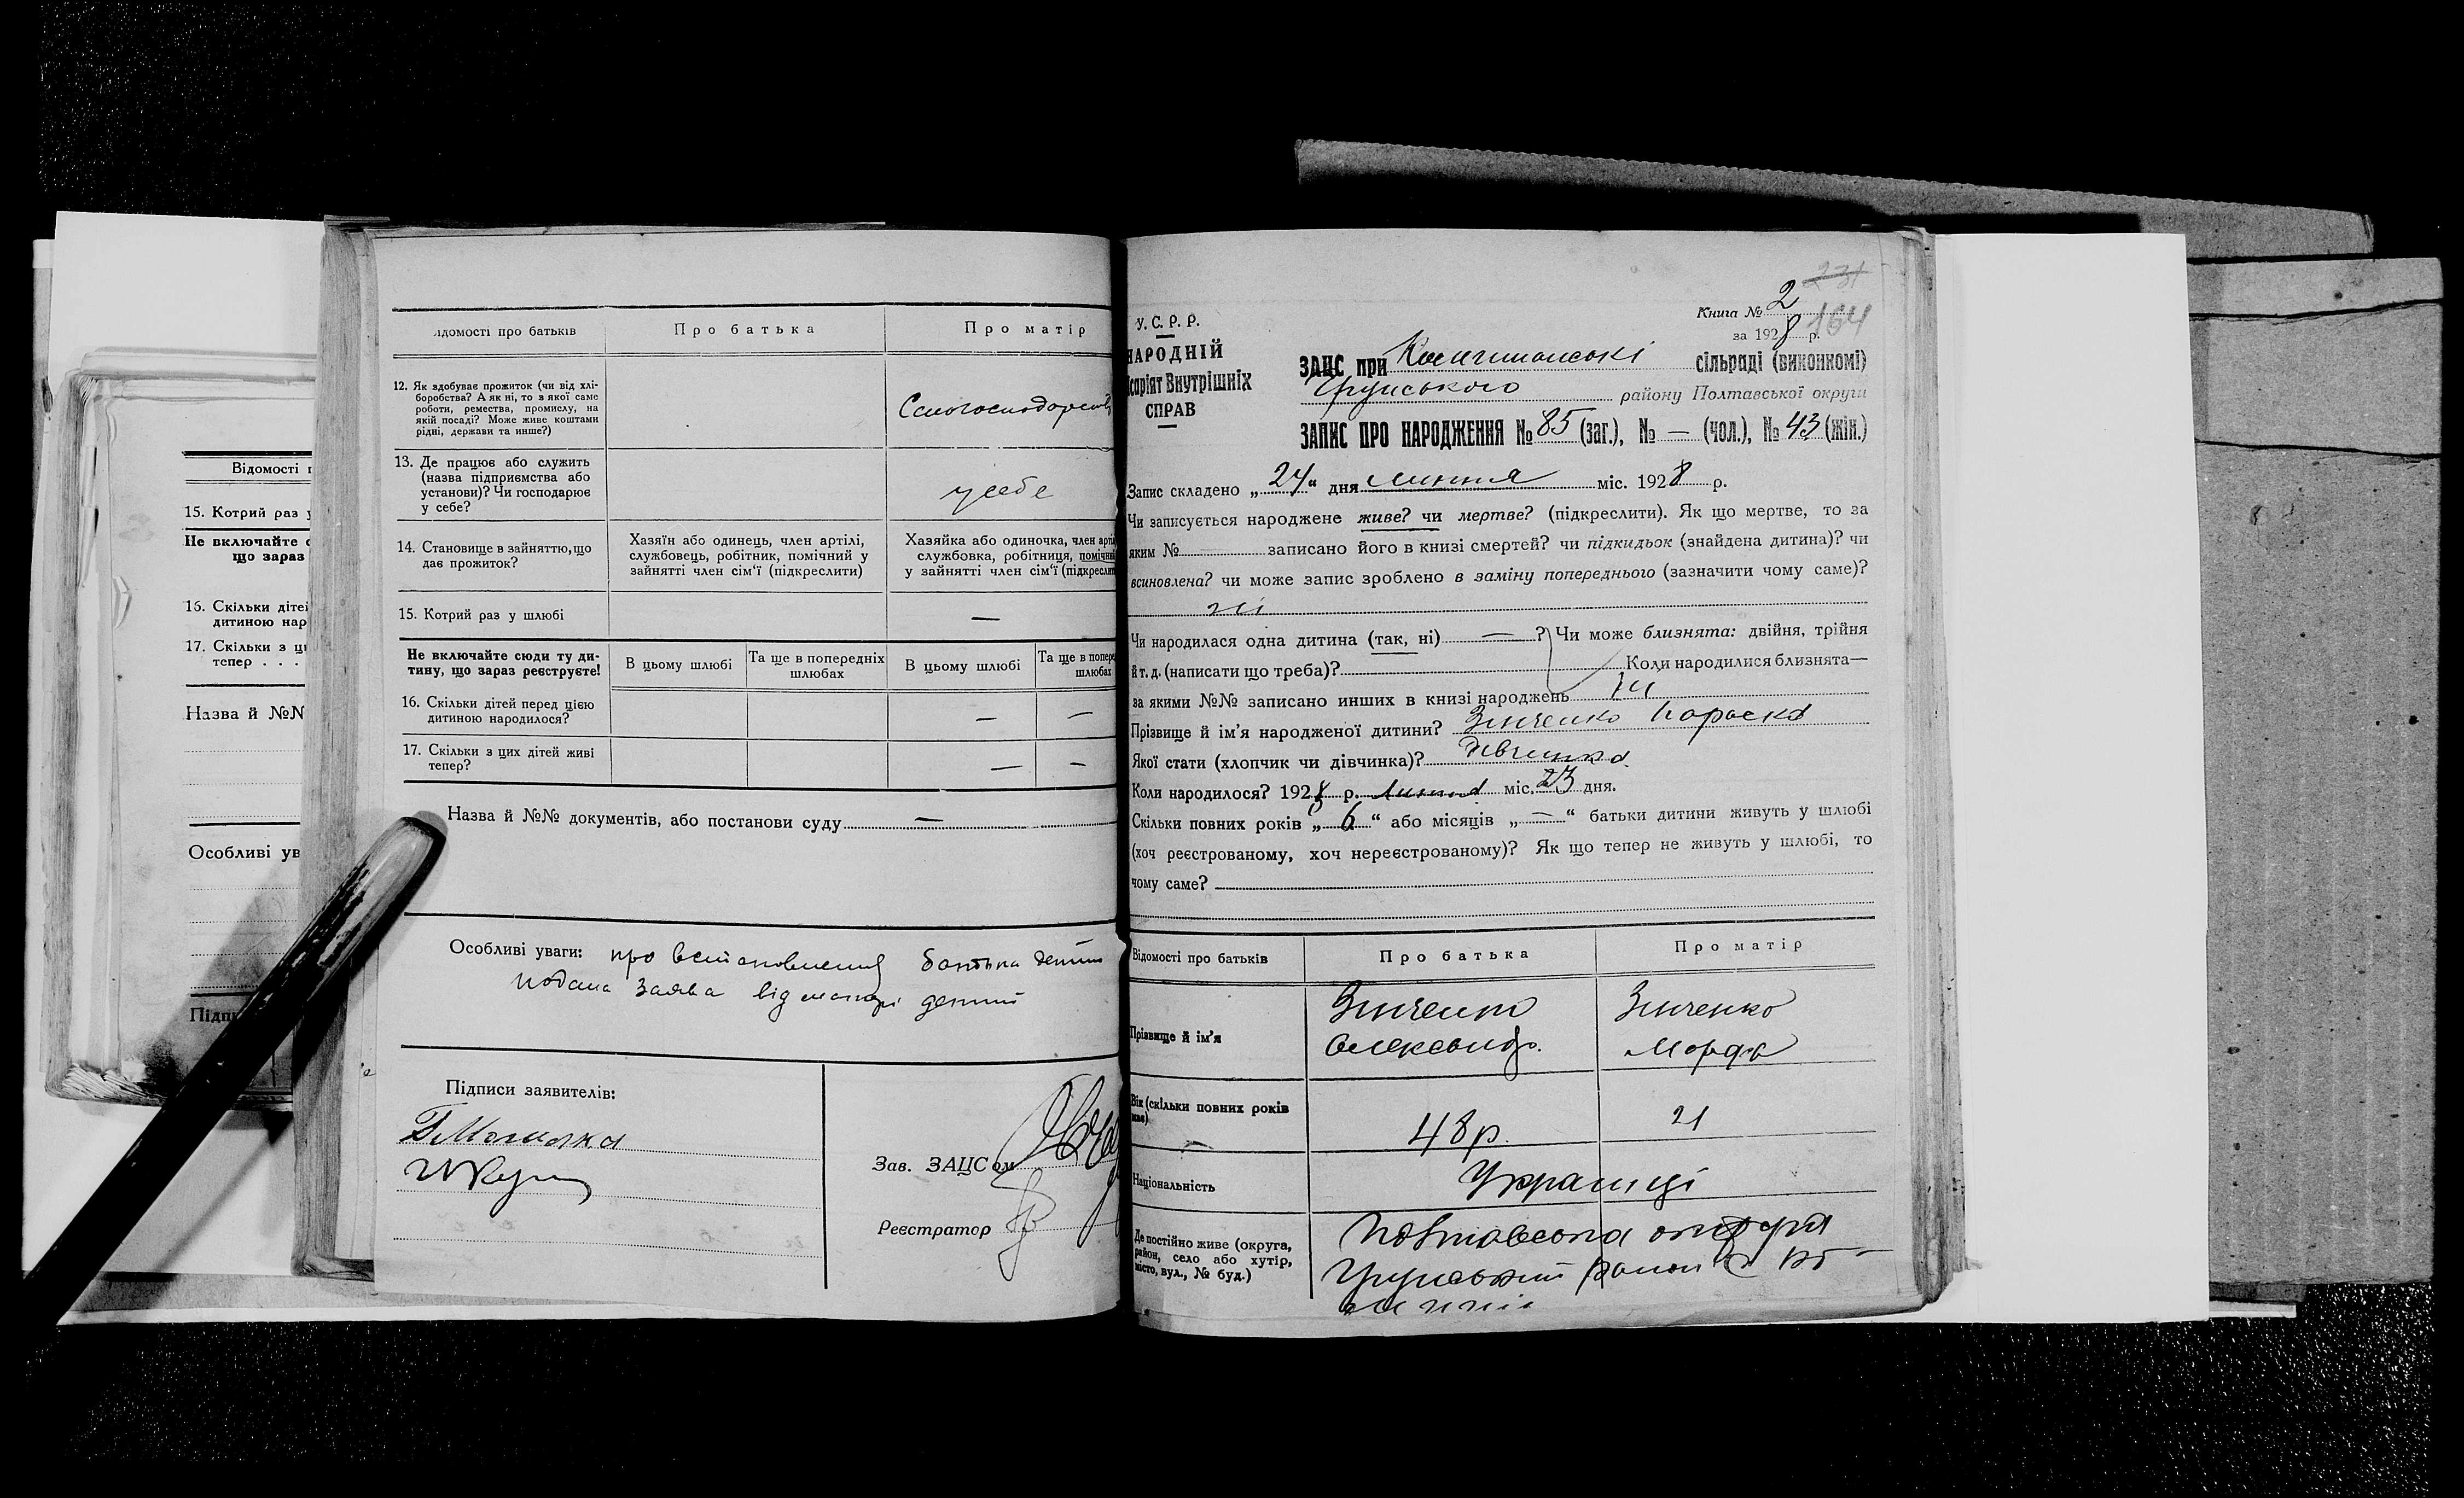 Відомості п
15. Котрий раз у
Не включайте с
що зараз
16. Скільки дітей
дитиною нар
17. Скільки з ци
тепер . . .
Назва й №№
Особливі ув
Підпи
ідомості про батьків
Про батька
Про матір
12. Як здобуває прожиток (чи від хлі-
боробства? А як ні, то з якої саме
роботи, ремества, промислу, на
якій посаді? Може живе коштами
рідні, держави та инше?)
13. Де працює або служить
(назва підприємства або
установи)? Чи господарює
у себе?
у себе
14. Становище в зайняттю, що
дає прожиток?
Хазяїн або одинець, член артілі,
службовець, робітник, помічний у
зайнятті член сім'ї (підкреслити)
Хазяйка або одиночка, член арті
службовка, робітниця, помічни
у зайнятті член сім'ї (підкресли
15. Котрий раз у шлюбі —
Не включайте сюди ту ди-
тину, що зараз реєструєте!
В цьому шлюбі
Та ще в попередніх
шлюбах
В цьому шлюбі
Та ще в попере
шлюбах
16. Скільки дітей перед цією
дитиною народилося?
— —
17. Скільки з цих дітей живі
тепер?
— —
Назва й №№ документів, або постанови суду —
Особливі уваги: про встановлення батька дитини
подана заява від матері дитини
Підписи заявителів:
Зав. ЗАЦС ом
Реєстратор
231
Книга № 2
164
за 1928 р.
У. С. Р. Р.
НАРОДНІЙ
ісаріят Внутрішніх
СПРАВ
ЗАЦС при сільраді (виконкомі)
Грунського району Полтавської округи
ЗАПИС ПРО НАРОДЖЕННЯ № 85 (заг.), № — (чол.), № 43 (жін.)
Запис складено „24" дня липня міс. 1928 р.
Чи записується народжене живе? чи мертве? (підкреслити). Як що мертве, то за
яким № записано його в книзі смертей? чи підкидьок (знайдена дитина)? чи
всиновлена? чи може запис зроблено в заміну попереднього (зазначити чому саме)?
ні
Чи народилася одна дитина (так, ні) — ? Чи може близнята: двійня, трійня
й т. д. (написати що треба)? Коли народилися близнята—
за якими №№ записано инших в книзі народжень ні
Прізвище й ім'я народженої дитини? Зінченко Параска
Якої стати (хлопчик чи дівчинка)? дівчинка
Коли народилося? 1928 р. липня міс. 23 дня.
Скільки повних років „6" або місяців „—" батьки дитини живуть у шлюбі
(хоч реєстрованому, хоч нереєстрованому)? Як що тепер не живуть у шлюбі, то
чому саме?
Відомості про батьків
Про батька
Про матір
Прізвище й ім'я
Зінченко
Олександр.
Зінченко
Марфа
Вік (скільки повних років
має)
48 р.
21
Національність
Українці
Де постійно живе (округа,
район, село або хутір,
місто, вул., № буд.)
Полтавська округа
Грунський район